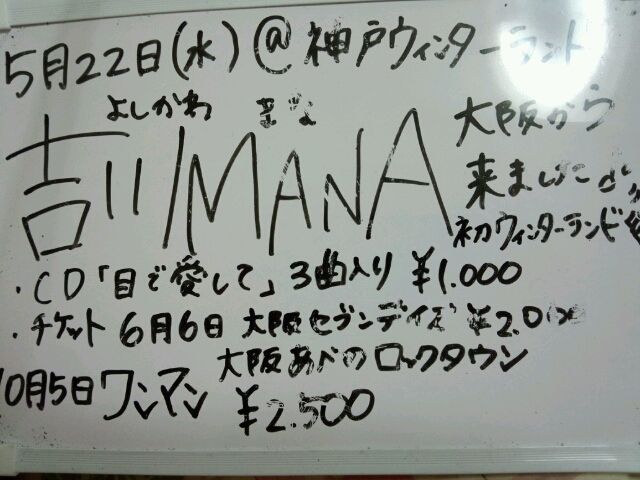 5月22日(水)@神戸ウィンターランド
よしかわ まな
吉川MANA
大阪から
来ました
初ウィンターランド
・CD「目で愛して」3曲入り ¥1.000
・チケット 6月6日 大阪セブンデイズ ¥2.000
大阪あべのロックタウン
10月5日ワンマン ¥2.500